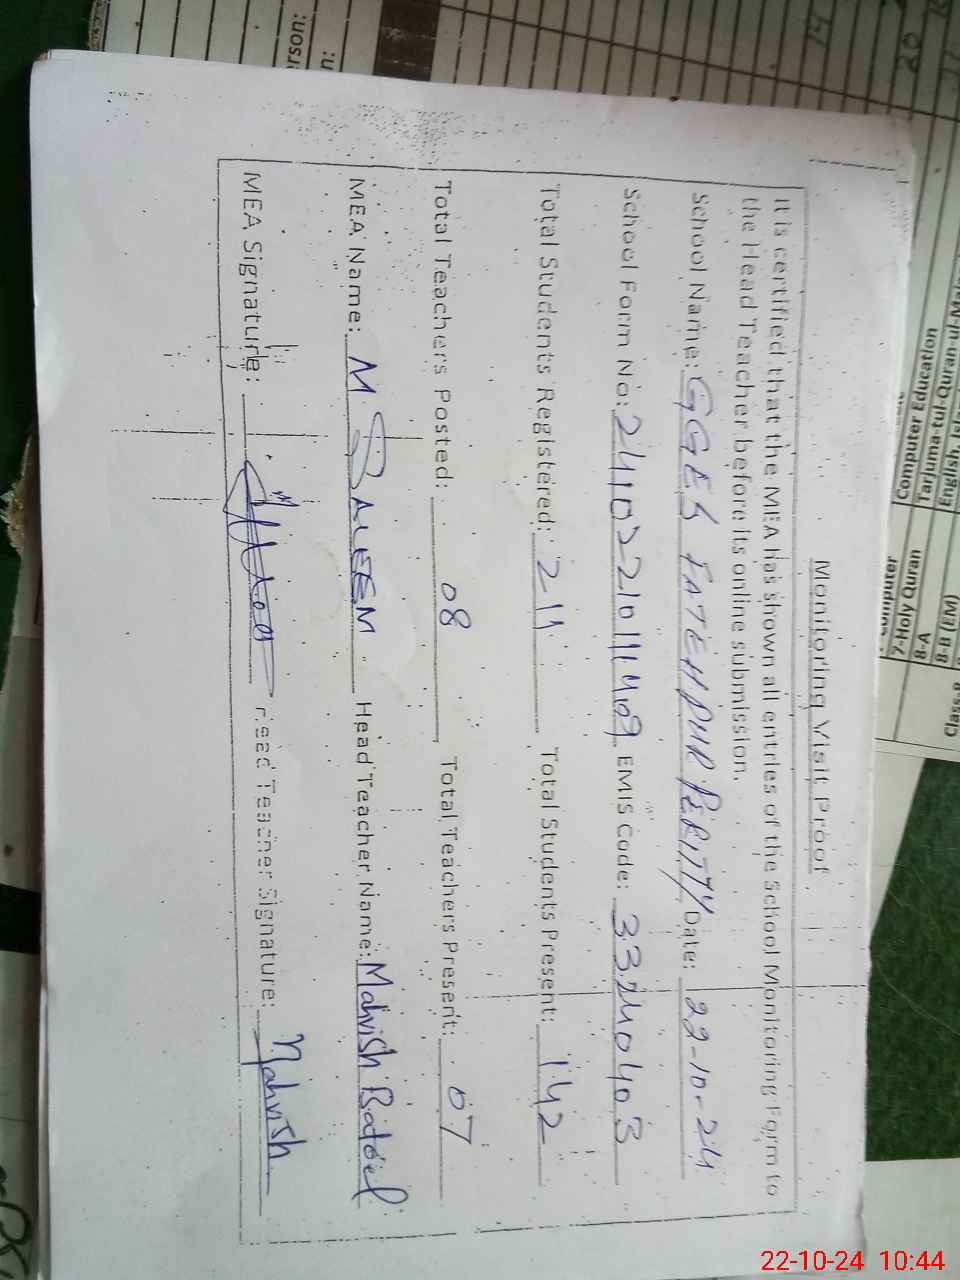 Monitoring Visit Proof
It is certified that the MEA has shown all entries of the School Monitoring Form to
the Head Teacher before its online submission.
School Name: GGES FATEHPUR Date: 22-10-24
School Form No: EMIS Code: 33240403
Total Students Registered: 211 Total Students Present: 142
Total Teachers Posted: 08 Total Teachers Present: 07
MEA Name: M SALEEM Head Teacher Name: Mahvish Batool
MEA Signature: Head Teacher Signature: Mahvish
erson:
n:
Computer
7-Holy Quran
8-A
8-B (EM)
Class-8
Computer Education
Tarjuma-tul-Quran-ul-Maj
English, Isla
22-10-24 10:44